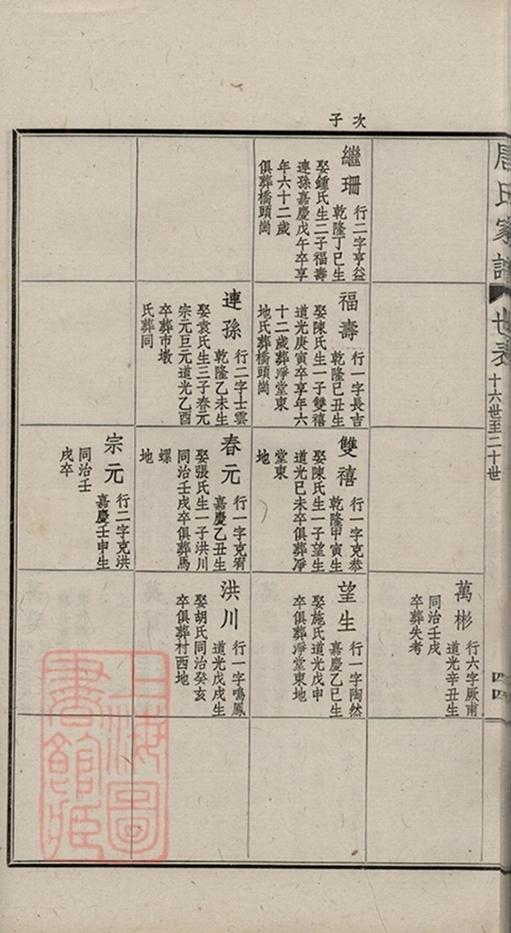 唐氏家譜
世表
十六世至二十世
四四
次子
萬彬
行六字厥甫
道光辛丑生
同治壬戌
卒葬失考
繼珊
行二字亨益
乾隆丁巳生
娶鍾氏生二子福壽
連孫嘉慶戊午卒享
年六十二歲
俱葬橋頭崗
福壽
行一字長吉
乾隆己丑生
娶陳氏生一子雙禧
道光庚寅卒享年六
十二歲葬淨堂東
地氏葬橋頭崗
雙禧
行一字克恭
乾隆甲寅生
娶陳氏生一子望生
道光己未卒俱葬淨
堂東
地
望生
行一字陶然
嘉慶乙巳生
娶施氏道光戊申
卒俱葬淨堂東地
連孫
行二字士雲
乾隆乙未生
娶袁氏生三子春元
宗元亘元道光乙酉
卒葬市墩
氏葬同
春元
行一字克宥
嘉慶乙丑生
娶張氏生一子洪川
同治壬戌卒俱葬馬
螺
地
洪川
行一字鳴鳳
道光戊戌生
娶胡氏同治癸亥
卒俱葬村西地
宗元
行二字克洪
嘉慶壬申生
同治壬
戌卒
上海圖
書館藏